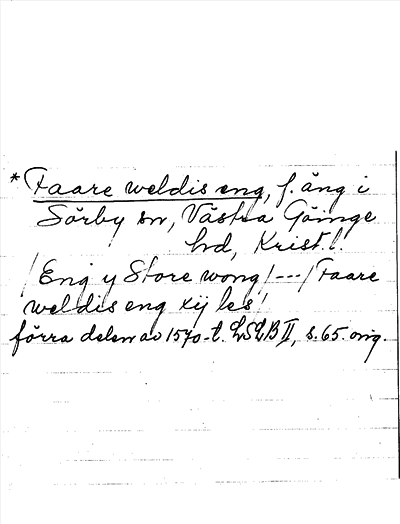 * Faare weldis eng, f. äng i
Sörby sn, Västra Göinge
hd, Krist. l.
/Eng y Store wong/---/Faare
weldis eng xij les/
förra delen av 1570-t. LSLB II, s. 65. orig.